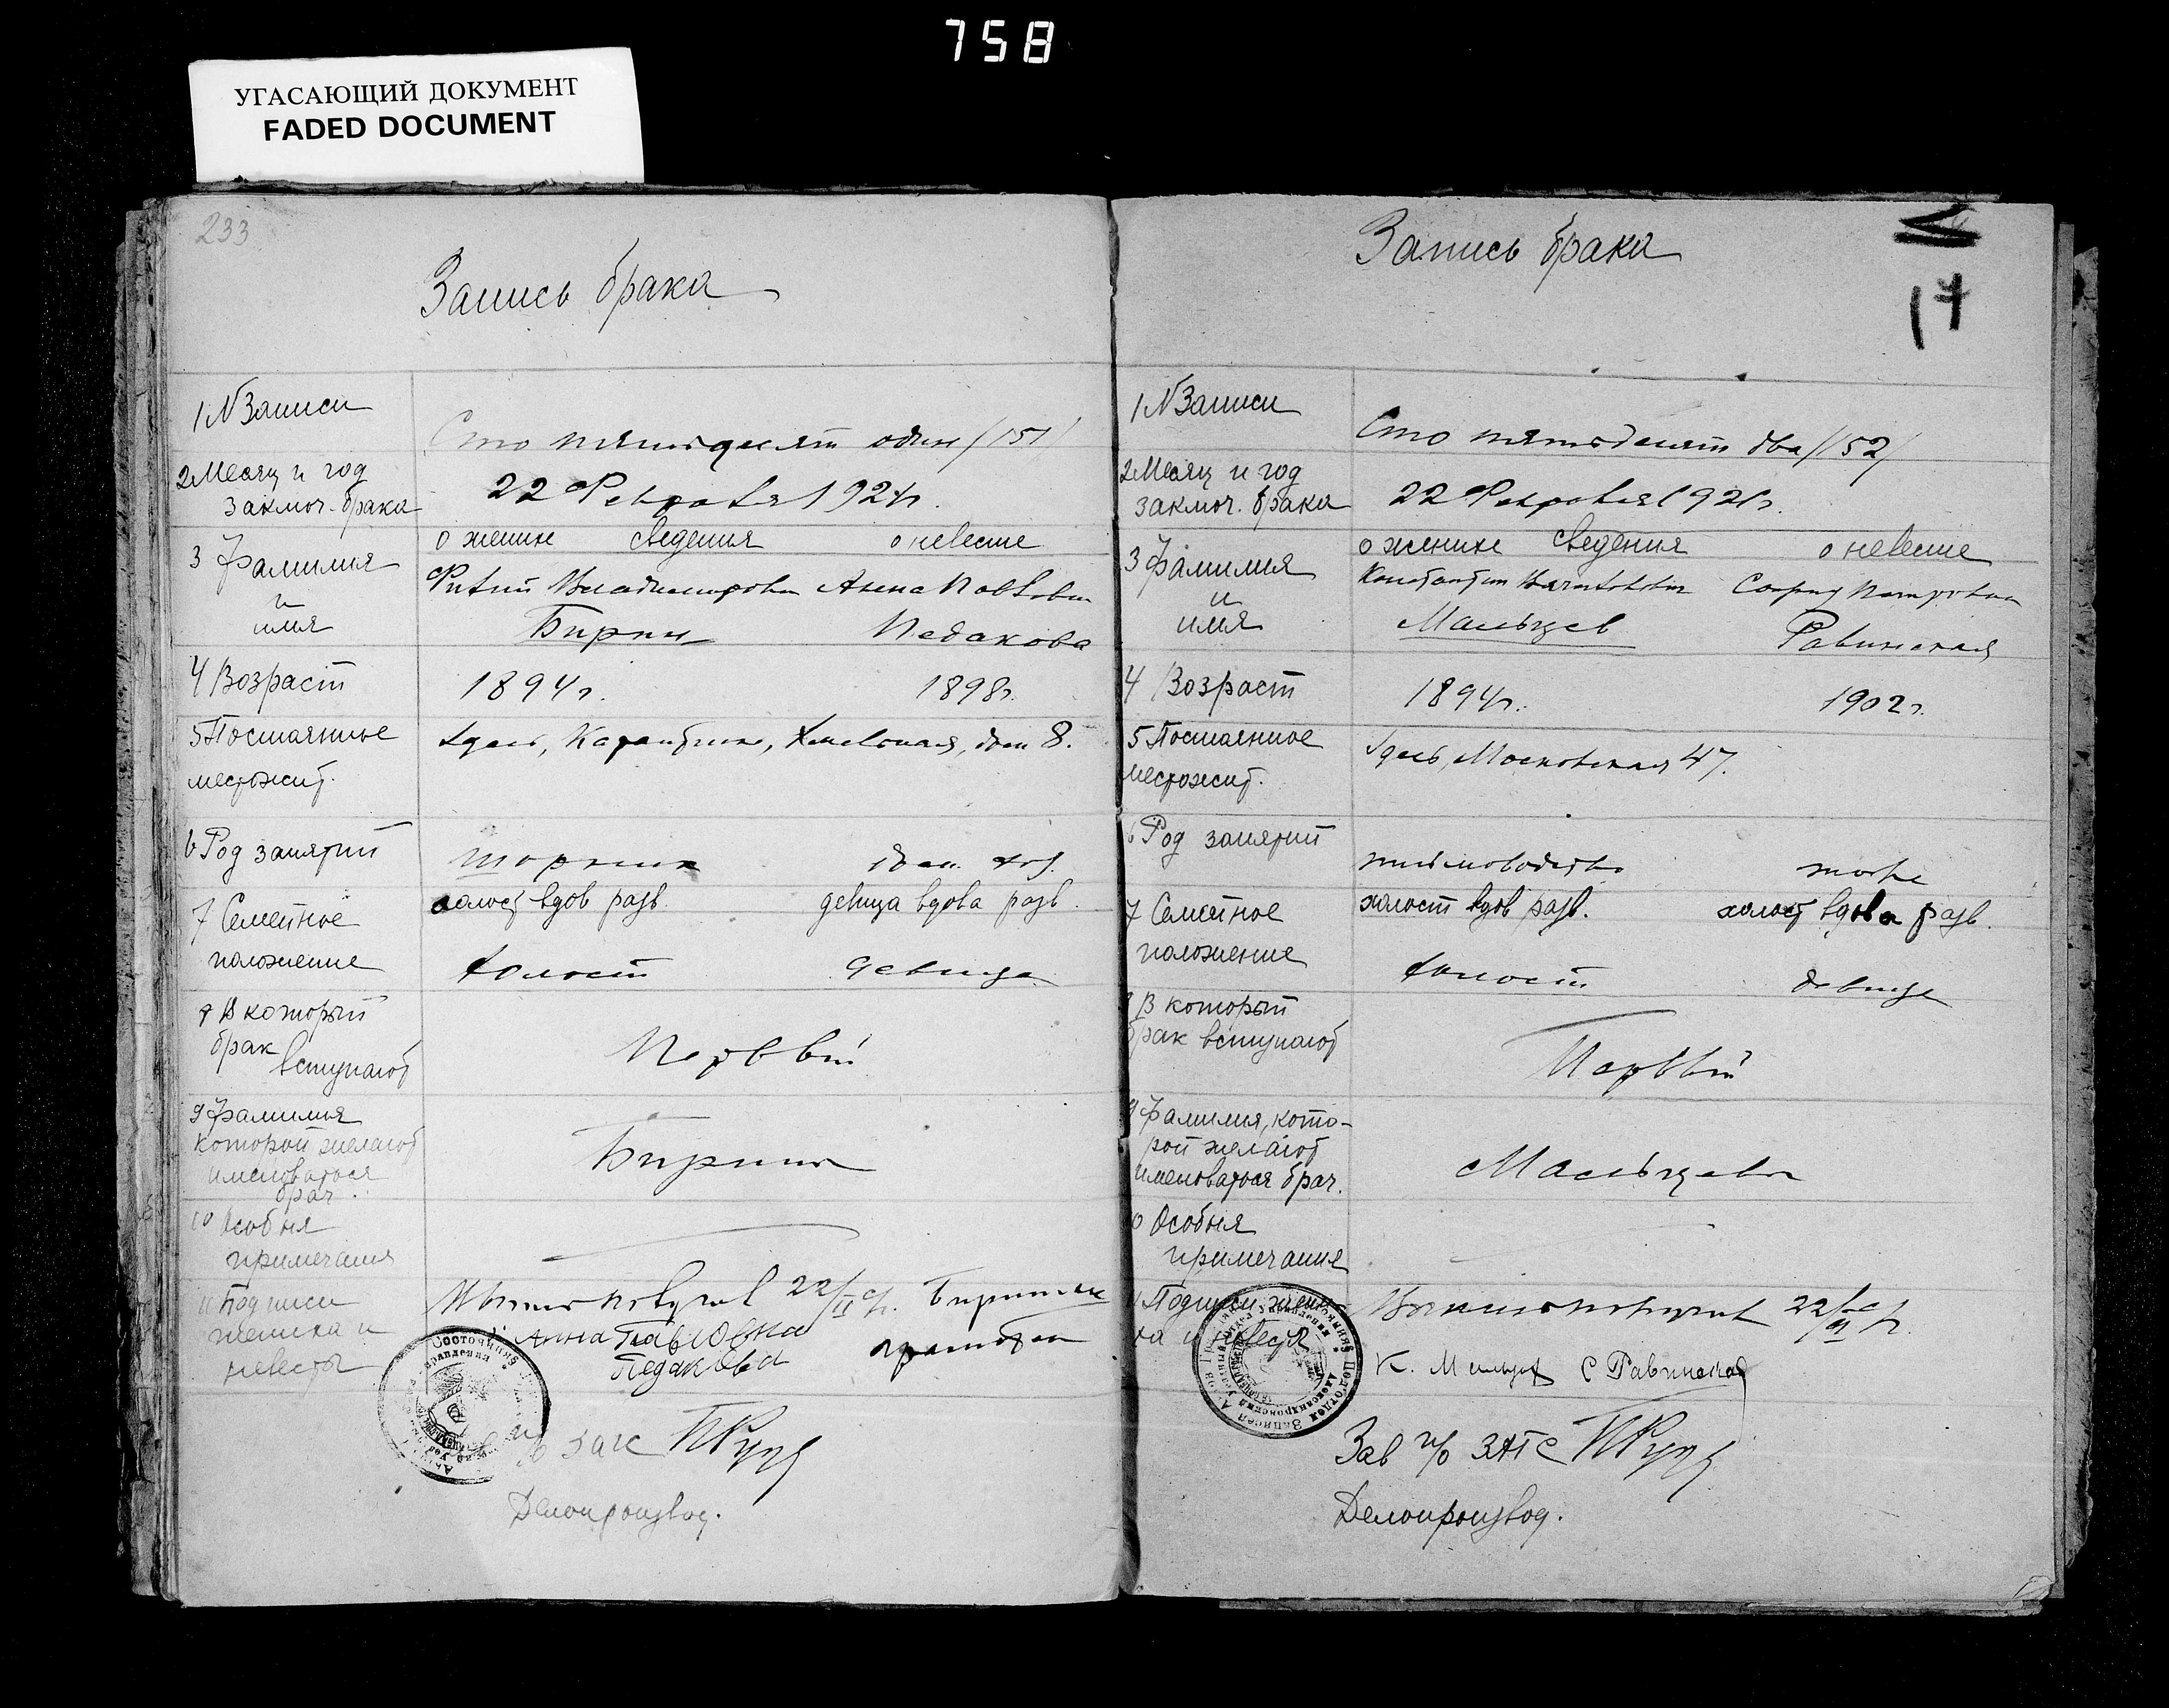 758
УГАСАЮЩИЙ ДОКУМЕНТ
FADED DOCUMENT
233
Запись брака
1 N Записи
Сто пятьдесят один /151/
2 Месяц и год
заключ. брака
22 Февраля 192 г.
о женихе сведения о невесте
3 Фамилия
и
имя
Владимирович Анна Павловна
Бирин Педакова
4 Возраст
1894 г. 1898 г.
5 Постоянное
местожит.
Здесь, Карантин, дом 8.
6 Род занятий
шорник дом. хоз.
7 Семейное
положение
холост вдов разв. девица вдова разв.
холост девица
8 В который
брак
вступают
Первый
9 Фамилия
которой желают
именоваться
брач.
Бирины
10 Особыя
примечания
11 Подписи
жениха и
невесты
22/II с/г.
Анна Павловна
Педакова
загс
Делопроизвод.
Запись брака
17
1 N Записи
Сто пятьдесят два /152/
2 Месяц и год
заключ. брака
22 Февраля 192 г.
о женихе сведения о невесте
3 Фамилия
и
имя
Константин Петровна
Мальцев Равинская
4 Возраст
1894 г. 1902 г.
5 Постоянное
местожит.
Здесь, Московская 47.
6 Род занятий
письмоводство тоже
7 Семейное
положение
холост вдов разв. холост вдова разв.
холост девица
8 В который
брак вступают
Первый
9 Фамилия, кото-
рой желают
именоваться брач.
Мальцевы
10 Особыя
примечания
11 Подписи жени-
ха и невесты
22/II с/г.
К. Мальцев С Равинская
Зав п/о ЗАГС
Делопроизвод.